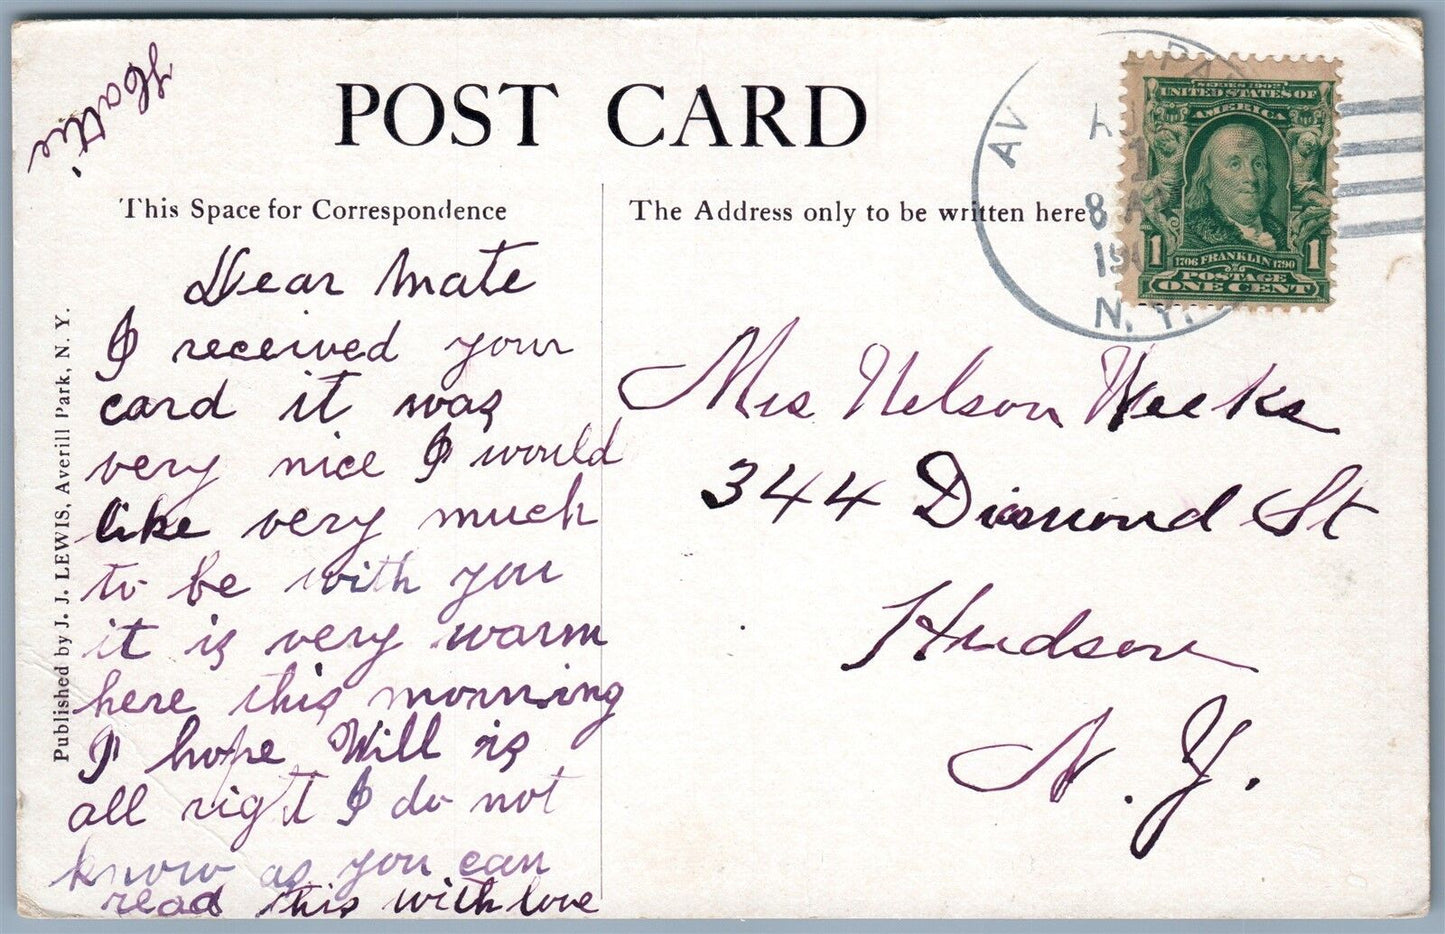 POST CARD
This Space for Correspondence
The Address only to be written here
Dear Mate
I received your
card it was
very nice I would
like very much
to be with you
it is very warm
here this morning
I hope Will is
all right I do not
know as you can
read this with love
Hattie
Mrs Nelson Weeks
344 Diamond St
Hudson
N.Y.
Published by J. J. LEWIS, Averill Park, N. Y.
AV
PAR
8 A
19
N. Y.
SERIES 1902
UNITED STATES OF
AMERICA
1706 FRANKLIN 1790
1 1
POSTAGE
ONE CENT